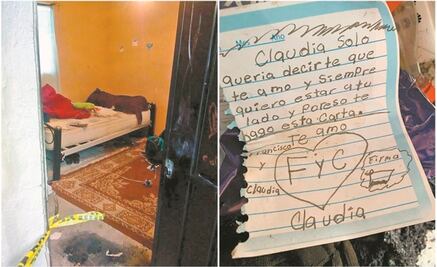 Año
Claudia Solo
queria decirte que
te amo y Siempre
quiero estar a tu
lado y Poreso te
hago esta carta.
Te amo
Francisco
y
Claudia
F y C
Firma
Claudia